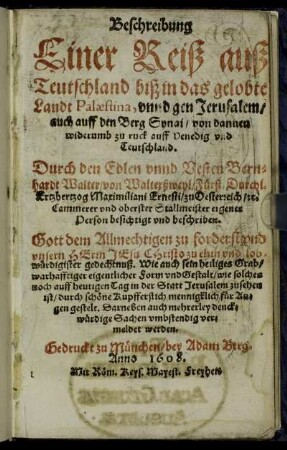 Beschreibung
Einer Reiß auß
Teutschland biß in das gelobte
Landt Palæstina, vnnd gen Jerusalem/
auch auff den Berg Synai/ von dannen
widerumb zu ruck auff Venedig vnd
Teutschland.
Durch den Edlen vnnd Vesten Bern-
hardt Walter/von Walterßweyl/Fürst. Durchl.
Ertzhertzog Maximiliani Ernesti/zu Oesterreich/ꝛc.
Cammerer vnd oberster Stallmeister eigener
Person besichtigt vnd beschriben.
Gott dem Allmechtigen zu forderst/vnd
vnsern HErrn JEsu Christo zu ehrn vnd lob-
würdigister gedechtnuß. Wie auch sein heiliges Grab/
warhafftiger eigentlicher Form vnd Gestalt/ wie solches
noch auff heutigen Tag in der Statt Jerusalem zusehen
ist/ durch schöne Kupfferstich/ mennigklich/für Au-
gen gestelt. Darneben auch mehrerley denck-
würdige Sachen vmbstendig ver-
meldet werden.
Gedruckt zu München/bey Adam Berg.
Anno 1608.
Mit Röm. Keys. Mayest. Freyheit